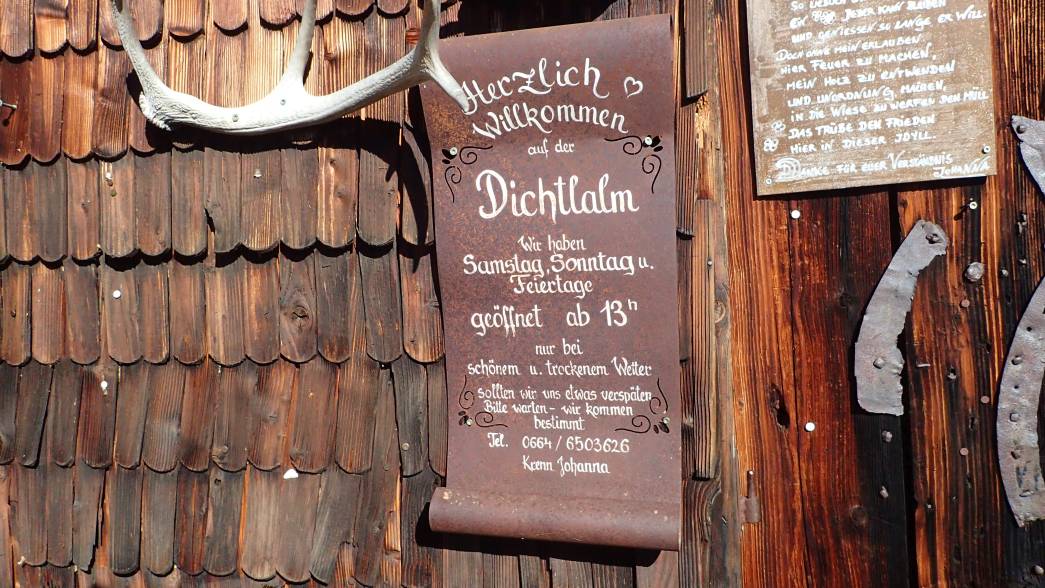 Herzlich
Willkommen
auf der
Dichtlalm
Wir haben
Samstag, Sonntag u.
Feiertage
geöffnet ab 13h
nur bei
schönem u. trockenem Wetter
sollten wir uns etwas verspäten
Bitte warten - wir kommen
bestimmt
Tel. 0664/6503626
Krenn Johanna
JEDER KANN BLEIBEN
UND GENIESSEN SO LANGE ER WILL.
DOCH OHNE MEIN ERLAUBEN.
HIER FEUER ZU MACHEN,
MEIN HOLZ ZU ENTWENDEN
UND UNORDNUNG MACHEN,
IN DIE WIESE ZU WERFEN DEN MÜLL
DAS TRÜBE DEN FRIEDEN
HIER IN DIESER IDYLL.
DANKE FÜR EUER VERSTÄNDNIS
JOHANNA